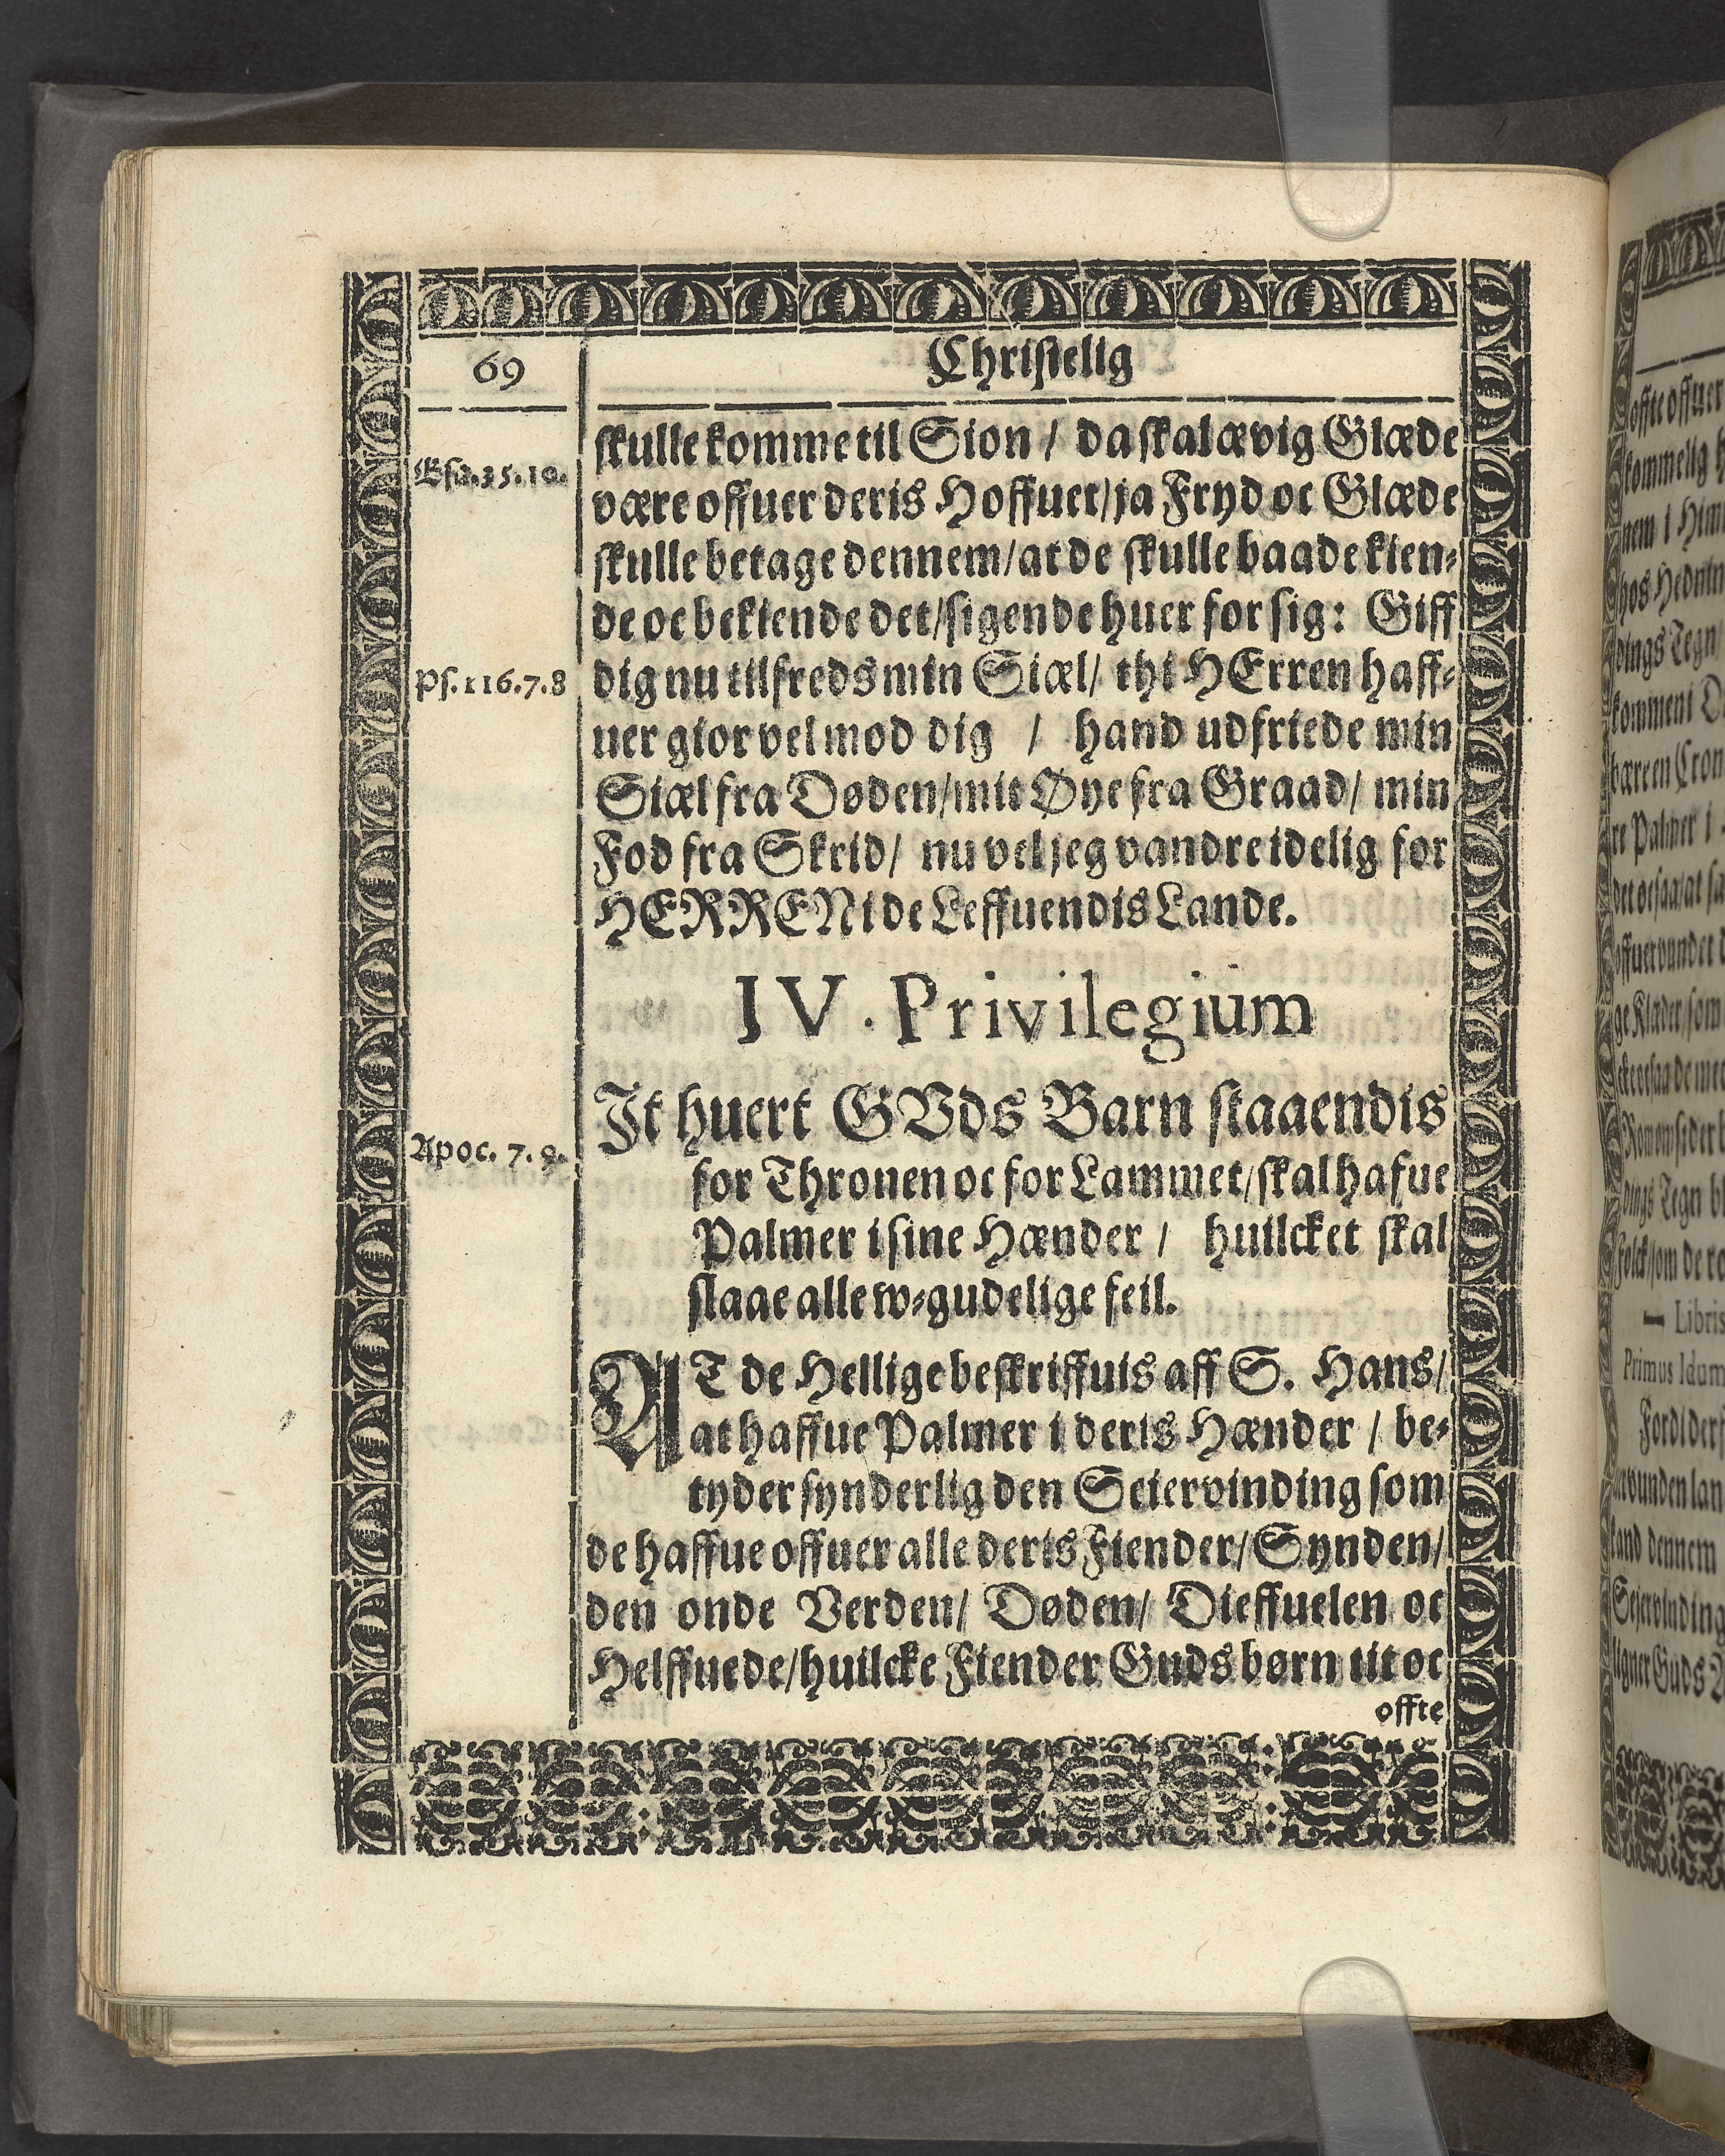 69
Christelig
Esa.35.10.
skulle komme til Sion / da skal ævig Glæde
være offuer deris Hoffuet/ja Fryd oc Glæde
skulle betage dennem/at de skulle baade kien-
de oc bekiende det/sigende huer for sig: Giff
Ps.116.7.8
dig nu tilfreds min Siæl/ thi HErren haff-
uer gior vel mod dig / hand udfriede min
Siæl fra Døden/mit Øye fra Graad/ min
Fod fra Skrid/ nu vel jeg vandre idelig for
HERREN i de Leffuendis Lande.
IV. Privilegium
It huert GVds Barn staaendis
Apoc. 7.9.
for Thronen oc for Lammet/skal hafue
Palmer i sine Hænder / huilcket skal
slaae alle w-gudelige feil.
AT de Hellige beskriffuis aff S. Hans/
at haffue Palmer i deris Hænder / be-
tyder synderlig den Seiervinding som
de haffue offuer alle deris Fiender/Synden/
den onde Verden/ Døden/ Dieffuelen oc
Helffuede/huilcke Fiender Guds børn tit oc
offte